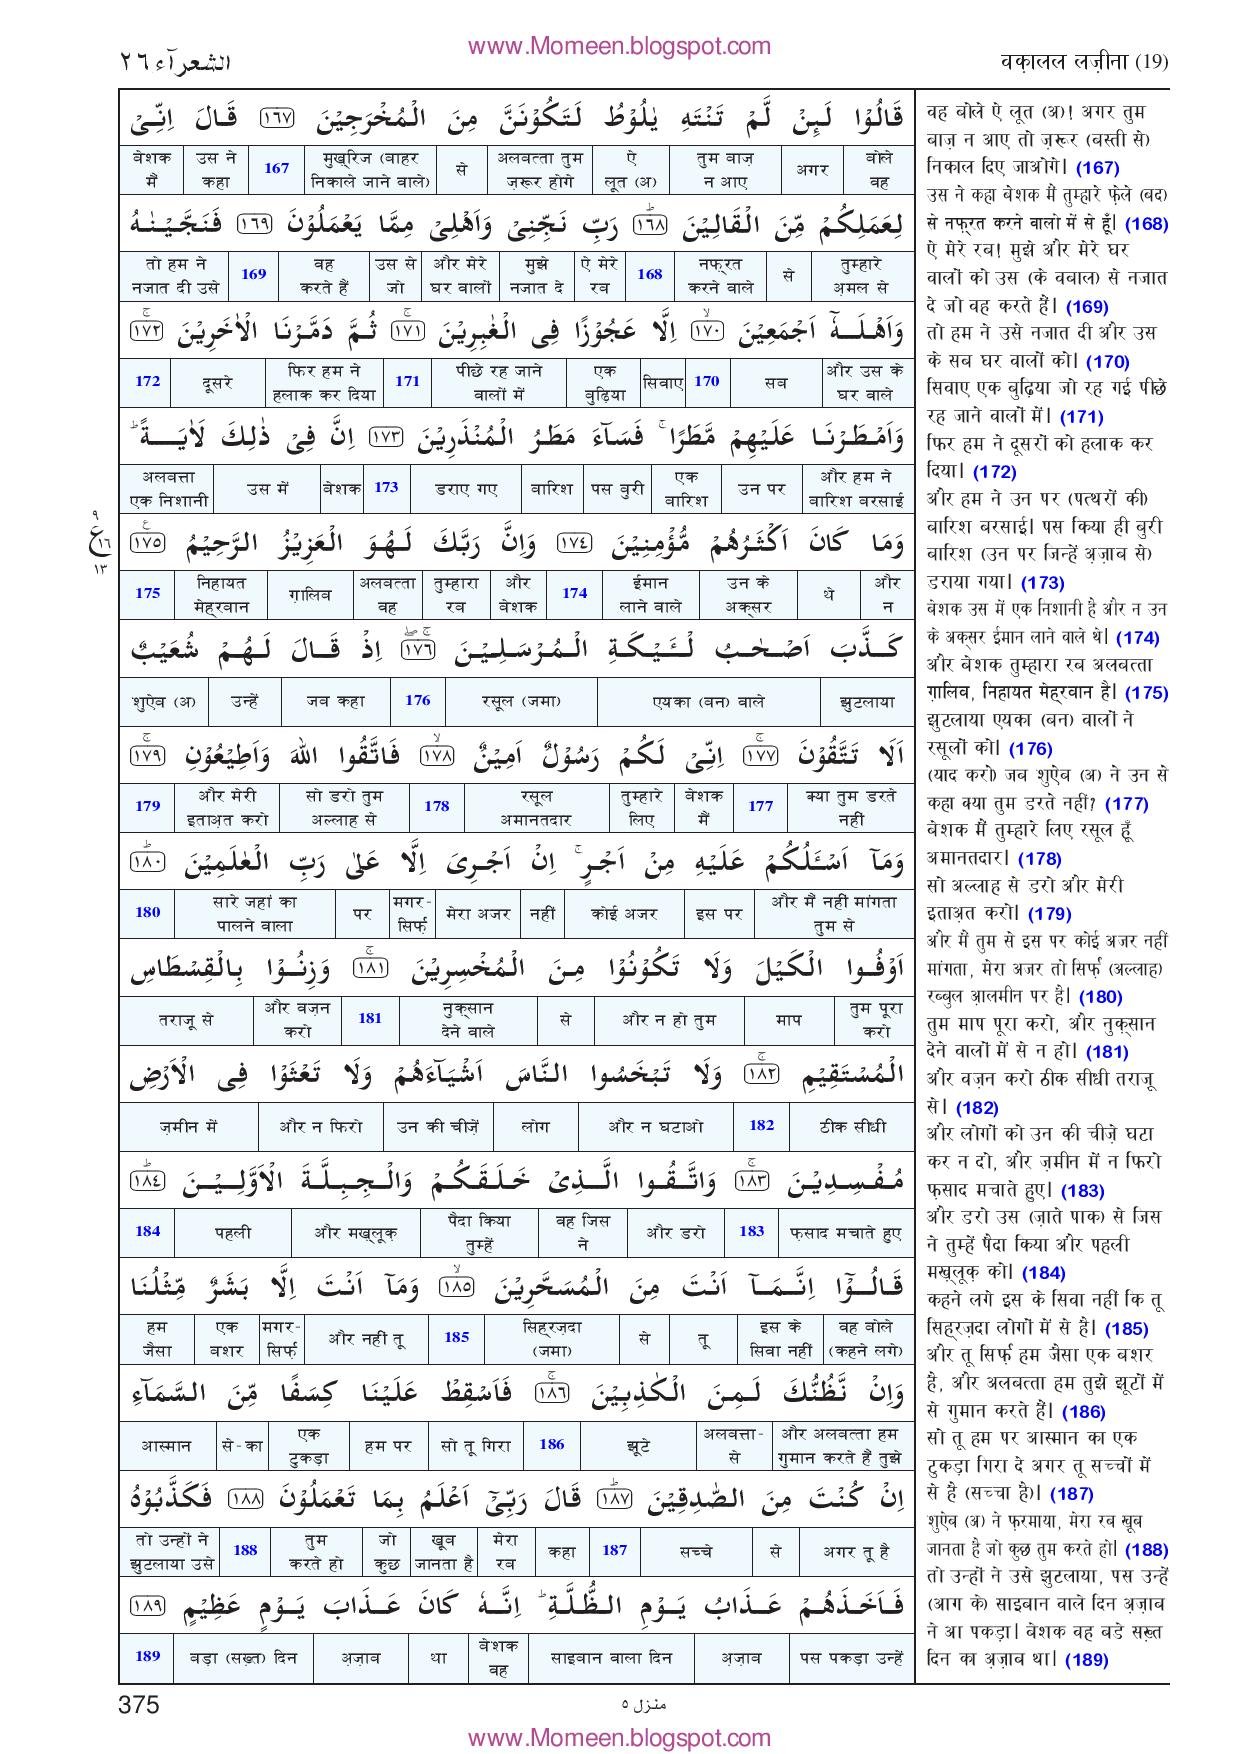 www.Momeen.blogspot.com
الشعرآء ٢٦
वक़ालल लज़ीना (19)
قَالُوْا لَىِٕنْ لَّمْ تَنْتَهِ يٰلُوْطُ لَتَكُوْنَنَّ مِنَ الْمُخْرَجِيْنَ ١٦٧ قَالَ اِنِّىْ
बोले वह अगर तुम बाज़ न आए ऐ लूत (अ) अलबत्ता तुम ज़रूर होगे से मुख़्रिज (बाहर निकाले जाने वाले) 167 उस ने कहा बेशक मैं
لِعَمَلِكُمْ مِّنَ الْقَالِيْنَ ١٦٨ؕ رَبِّ نَجِّنِىْ وَاَهْلِىْ مِمَّا يَعْمَلُوْنَ ١٦٩ فَنَجَّيْنٰهُ
तुम्हारे अ़मल से से नफ़्रत करने वाले 168 ऐ मेरे रब मुझे नजात दे और मेरे घर वालों उस से जो वह करते हैं 169 तो हम ने नजात दी उसे
وَاَهْلَهٗٓ اَجْمَعِيْنَ ١٧٠ۙ اِلَّا عَجُوْزًا فِى الْغٰبِرِيْنَ ١٧١ۚ ثُمَّ دَمَّرْنَا الْاٰخَرِيْنَ ١٧٢ۚ
और उस के घर वाले सब 170 सिवाए एक बुढ़िया पीछे रह जाने वालों में 171 फिर हम ने हलाक कर दिया दूसरे 172
وَاَمْطَرْنَا عَلَيْهِمْ مَّطَرًا ۚ فَسَآءَ مَطَرُ الْمُنْذَرِيْنَ ١٧٣ اِنَّ فِىْ ذٰلِكَ لَاٰيَةً ؕ
और हम ने बारिश बरसाई उन पर एक बारिश पस बुरी बारिश डराए गए 173 बेशक उस में अलबत्ता एक निशानी
وَمَا كَانَ اَكْثَرُهُمْ مُّؤْمِنِيْنَ ١٧٤ وَاِنَّ رَبَّكَ لَهُوَ الْعَزِيْزُ الرَّحِيْمُ ١٧٥ۧ
٩ ع ١٦ ١٣
और न थे उन के अक्सर ईमान लाने वाले 174 और बेशक तुम्हारा रब अलबत्ता वह ग़ालिब निहायत मेह्रबान 175
كَذَّبَ اَصْحٰبُ لْـَٔيْكَةِ الْمُرْسَلِيْنَ ١٧٦ۚۖ اِذْ قَالَ لَهُمْ شُعَيْبٌ
झुटलाया एयका (बन) वाले रसूल (जमा) 176 जब कहा उन्हें शुऐब (अ)
اَلَا تَتَّقُوْنَ ١٧٧ۚ اِنِّىْ لَكُمْ رَسُوْلٌ اَمِيْنٌ ١٧٨ۙ فَاتَّقُوا اللّٰهَ وَاَطِيْعُوْنِ ١٧٩ۚ
क्या तुम डरते नहीं 177 बेशक मैं तुम्हारे लिए रसूल अमानतदार 178 सो डरो तुम अल्लाह से और मेरी इताअ़त करो 179
وَمَآ اَسْـَٔلُكُمْ عَلَيْهِ مِنْ اَجْرٍ ۚ اِنْ اَجْرِىَ اِلَّا عَلٰى رَبِّ الْعٰلَمِيْنَ ١٨٠ؕ
और मैं नहीं मांगता तुम से इस पर कोई अजर नहीं मेरा अजर मगर-सिर्फ़ पर सारे जहां का पालने वाला 180
اَوْفُوا الْكَيْلَ وَلَا تَكُوْنُوْا مِنَ الْمُخْسِرِيْنَ ١٨١ۚ وَزِنُوْا بِالْقِسْطَاسِ
तुम पूरा करो माप और न हो तुम से नुक़्सान देने वाले 181 और वज़न करो तराजू से
الْمُسْتَقِيْمِ ١٨٢ۚ وَلَا تَبْخَسُوا النَّاسَ اَشْيَآءَهُمْ وَلَا تَعْثَوْا فِى الْاَرْضِ
ठीक सीधी 182 और न घटाओ लोग उन की चीज़ें और न फिरो ज़मीन में
مُفْسِدِيْنَ ١٨٣ۚ وَاتَّقُوا الَّذِىْ خَلَقَكُمْ وَالْجِبِلَّةَ الْاَوَّلِيْنَ ١٨٤ؕ
फ़साद मचाते हुए 183 और डरो वह जिस ने पैदा किया तुम्हें और मख़्लूक़ पहली 184
قَالُوْٓا اِنَّمَآ اَنْتَ مِنَ الْمُسَحَّرِيْنَ ١٨٥ۙ وَمَآ اَنْتَ اِلَّا بَشَرٌ مِّثْلُنَا
वह बोले (कहने लगे) इस के सिवा नहीं तू से सिह्रज़दा (जमा) 185 और नहीं तू मगर-सिर्फ़ एक बशर हम जैसा
وَاِنْ نَّظُنُّكَ لَمِنَ الْكٰذِبِيْنَ ١٨٦ۚ فَاَسْقِطْ عَلَيْنَا كِسَفًا مِّنَ السَّمَآءِ
और अलबत्ता हम गुमान करते हैं तुझे अलबत्ता-से झूटे 186 सो तू गिरा हम पर एक टुकड़ा से-का आस्मान
اِنْ كُنْتَ مِنَ الصّٰدِقِيْنَ ١٨٧ؕ قَالَ رَبِّىْٓ اَعْلَمُ بِمَا تَعْمَلُوْنَ ١٨٨ فَكَذَّبُوْهُ
अगर तू है से सच्चे 187 कहा मेरा रब खूब जानता है जो कुछ तुम करते हो 188 तो उन्हों ने झुटलाया उसे
فَاَخَذَهُمْ عَذَابُ يَوْمِ الظُّلَّةِ ؕ اِنَّهٗ كَانَ عَذَابَ يَوْمٍ عَظِيْمٍ ١٨٩
पस पकड़ा उन्हें अ़ज़ाब साइबान वाला दिन बेशक वह था अ़ज़ाब बड़ा (सख़्त) दिन 189
वह बोले ऐ लूत (अ)! अगर तुम
बाज़ न आए तो ज़रूर (बस्ती से)
निकाल दिए जाओगे। (167)
उस ने कहा बेशक मैं तुम्हारे फ़ेले (बद)
से नफ़्रत करने वालो में से हूँ। (168)
ऐ मेरे रब! मुझे और मेरे घर
वालों को उस (के वबाल) से नजात
दे जो वह करते हैं। (169)
तो हम ने उसे नजात दी और उस
के सब घर वालों को। (170)
सिवाए एक बुढ़िया जो रह गई पीछे
रह जाने वालों में। (171)
फिर हम ने दूसरों को हलाक कर
दिया। (172)
और हम ने उन पर (पत्थरों की)
बारिश बरसाई। पस किया ही बुरी
बारिश (उन पर जिन्हें अ़ज़ाब से)
डराया गया। (173)
बेशक उस में एक निशानी है और न उन
के अक्सर ईमान लाने वाले थे। (174)
और बेशक तुम्हारा रब अलबत्ता
ग़ालिब, निहायत मेह्रबान है। (175)
झुटलाया एयका (बन) वालों ने
रसूलों को। (176)
(याद करो) जब शुऐब (अ) ने उन से
कहा क्या तुम डरते नहीं? (177)
बेशक मैं तुम्हारे लिए रसूल हूँ
अमानतदार। (178)
सो अल्लाह से डरो और मेरी
इताअ़त करो। (179)
और मैं तुम से इस पर कोई अजर नहीं
मांगता, मेरा अजर तो सिर्फ़ (अल्लाह)
रब्बुल आ़लमीन पर है। (180)
तुम माप पूरा करो, और नुक़्सान
देने वालों में से न हो। (181)
और वज़न करो ठीक सीधी तराजू
से। (182)
और लोगों को उन की चीज़े घटा
कर न दो, और ज़मीन में न फिरो
फ़साद मचाते हुए। (183)
और डरो उस (ज़ाते पाक) से जिस
ने तुम्हें पैदा किया और पहली
मख़्लूक़ को। (184)
कहने लगे इस के सिवा नहीं कि तू
सिह्रज़दा लोगों में से है। (185)
और तू सिर्फ़ हम जैसा एक बशर
है, और अलबत्ता हम तुझे झूटों में
से गुमान करते हैं। (186)
सो तू हम पर आस्मान का एक
टुकड़ा गिरा दे अगर तू सच्चों में
से है (सच्चा है)। (187)
शुऐब (अ) ने फ़रमाया, मेरा रब खूब
जानता है जो कुछ तुम करते हो। (188)
तो उन्हों ने उसे झुटलाया, पस उन्हें
(आग के) साइबान वाले दिन अ़ज़ाब
ने आ पकड़ा। बेशक वह बडे सख़्त
दिन का अ़ज़ाब था। (189)
375
منزل ٥
www.Momeen.blogspot.com